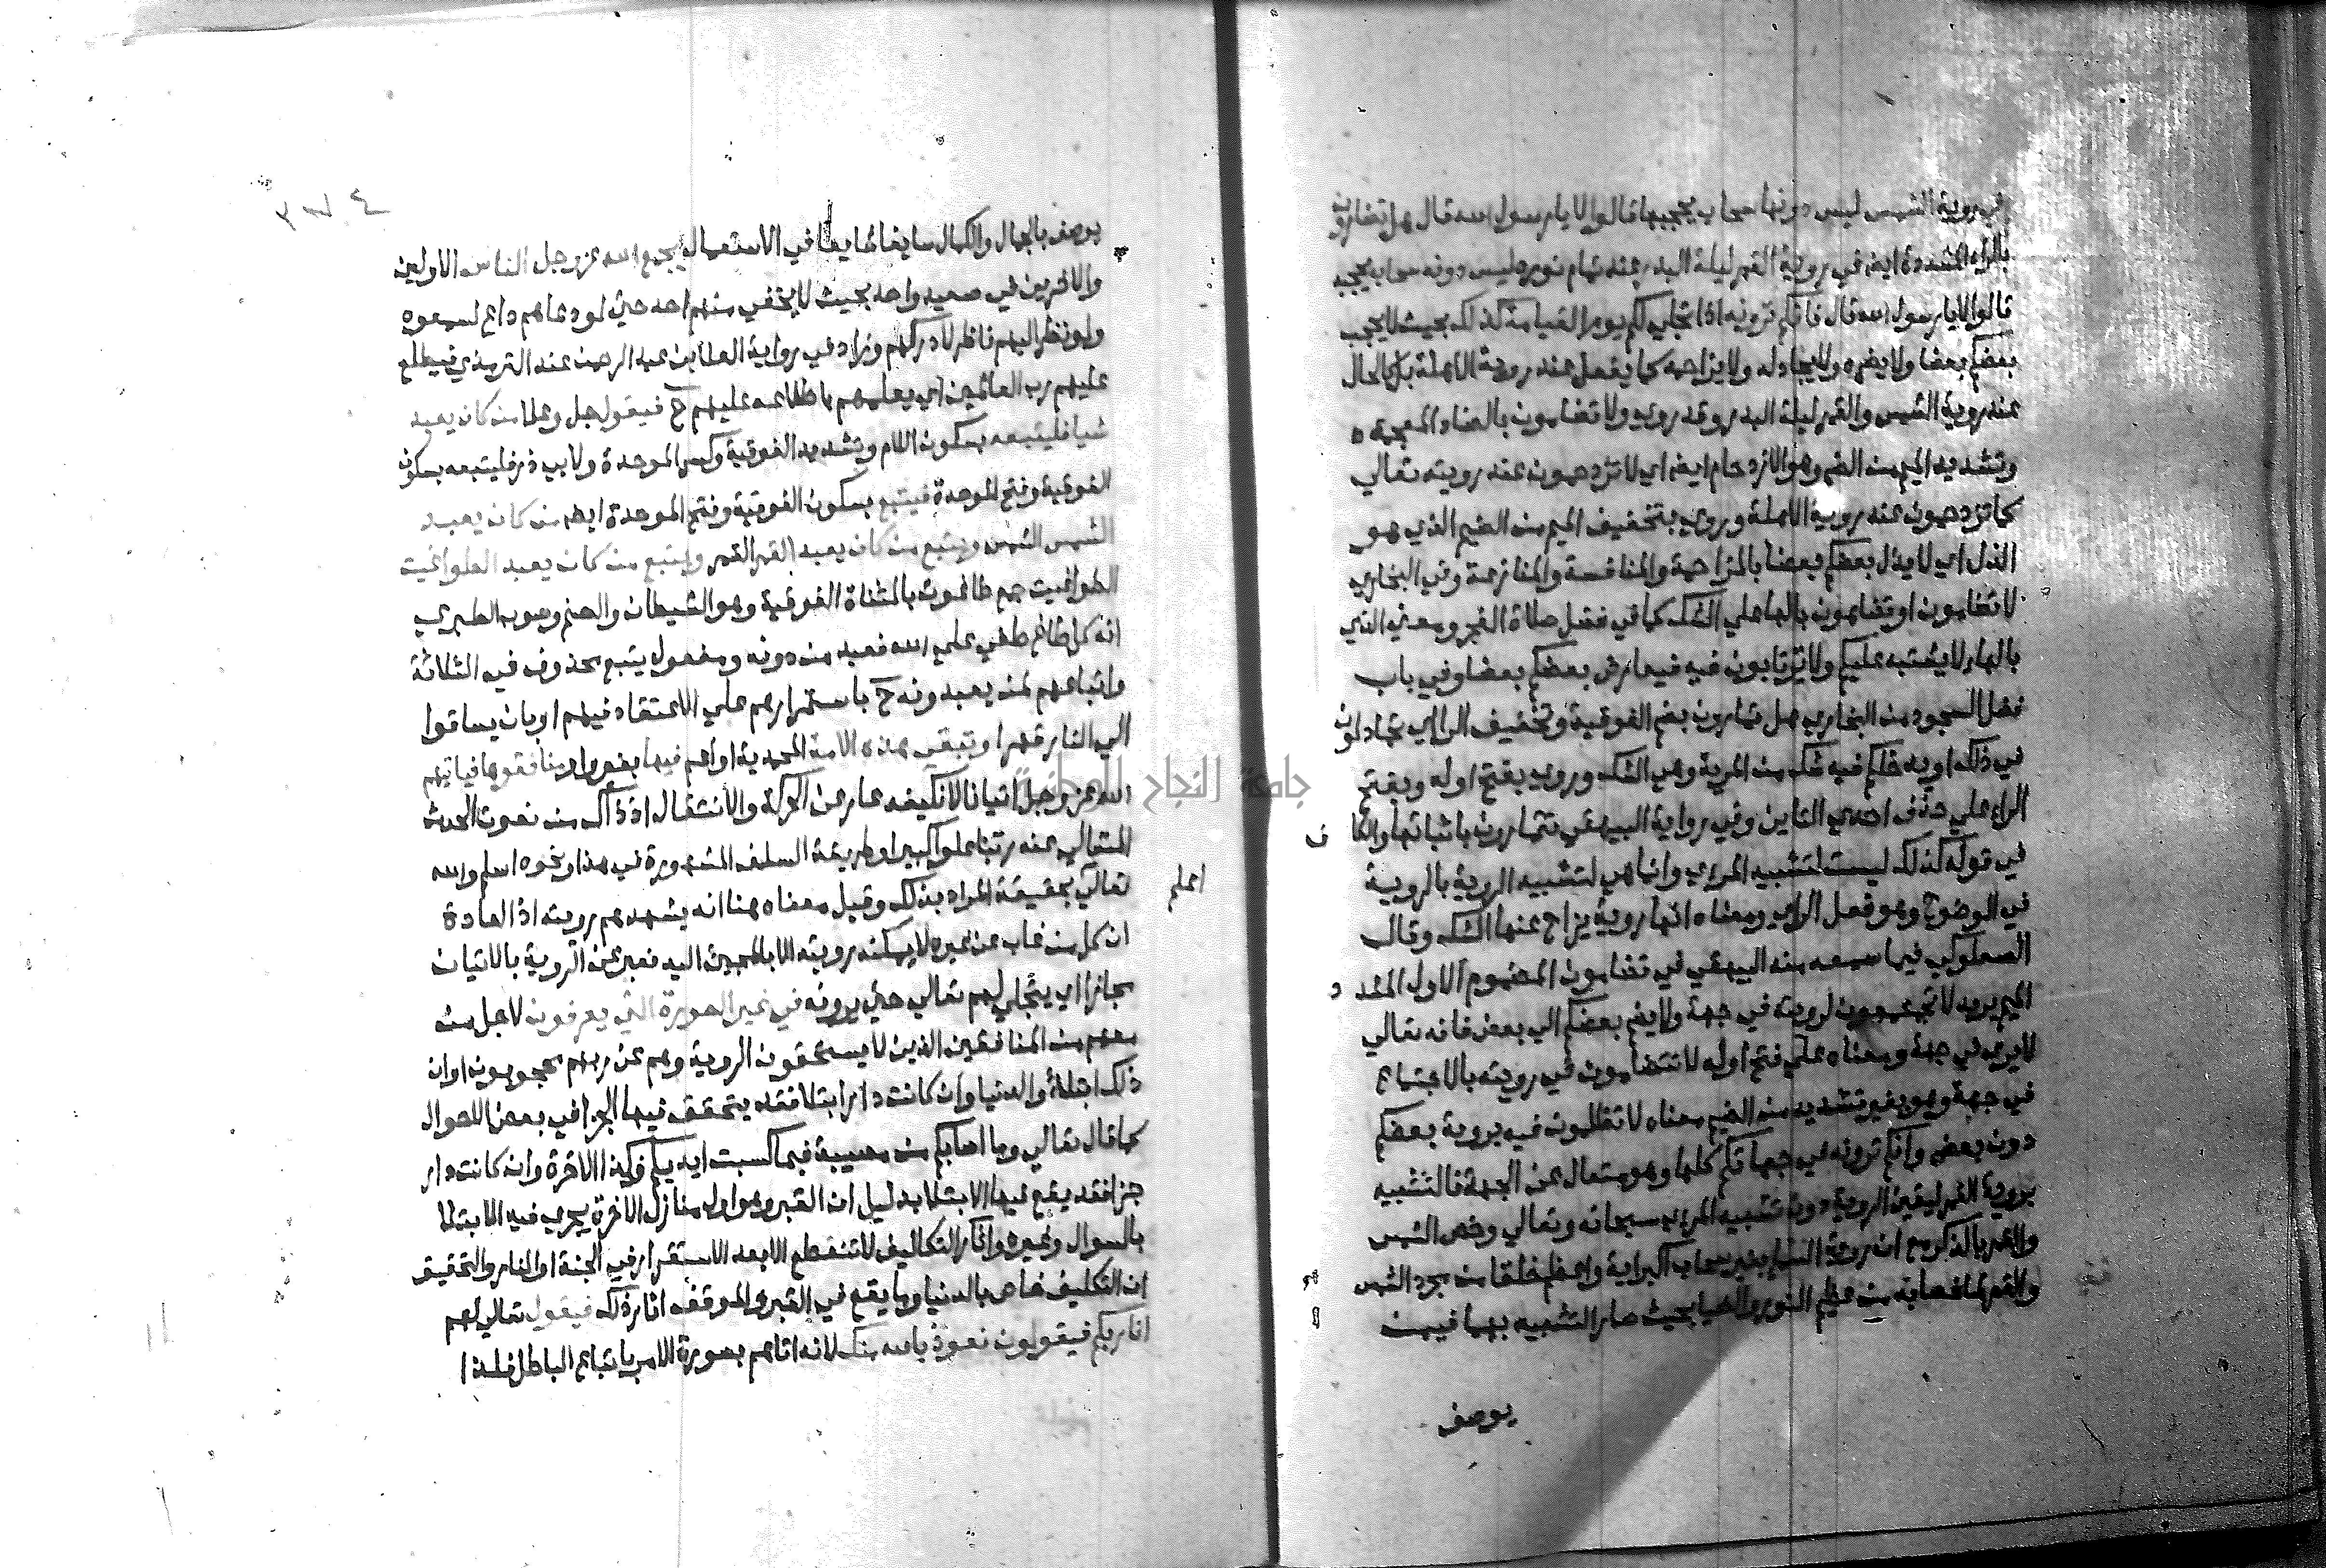 في روية الشمس ليس دونها سحاب يحجبها قالوا لا يا رسول الله قال هل تضارون
بالراء المشددة ايض في روية القمر ليلة البدر عند تمام نوره ليس دونه سحاب يحجبه
قالوا لا يا رسول الله قال فانكم ترونه اذا تجلي لكم يوم القيامة كذلك بحيث لا يحجب
بعضكم بعضا ولا يضره ولا يجادله ولا يزاحمه كما يفعل عند روية الاهلة بل كالحال
عند روية الشمس والقمر ليلة البدر وقد روي ولا تضامون بالضاد المعجمة ه
وتشديد الميم من الضم وهو الازدحام ايض اي لا تزدحمون عند رويته تعالي
كما تزدحمون عند روية الاهلة وروي بتخفيف الميم من الضيم الذي هو
الذل اي لا يذل بعضكم بعضا بالمزاحمة والمنافسة والمنازعة وفي البخاري
لا تضامون او تضاهون بالها علي الشك كما في فضل صلاة الفجر ومعني الذي
بالهاء لا يشتبه عليكم ولا ترتابون فيه فيعارض بعضكم بعضا وفي باب
فضل السجود من البخاري هل تمارون بضم الفوقية وتخفيف الراء اي تجادلون
في ذلك او يدخلكم فيه شك من المرية وهي الشك وروي بفتح اوله وبفتح
الراء علي حذف احدي التاين وفي رواية البيهقي تتمارون باثباتها والكا ف
في قوله كذلك ليست لتشبيه المري وانما هي لتشبيه الروية بالروية
في الوضوح وهو فعل الراي ومعناه انها روية يزاح عنها الشك وقال
الصعلوكي فيما سمعه منه البيهقي في تضامون المضموم الاول المشد د
الميم يريد لا تجتمعون لرويته في جهة ولا يضم بعضكم الي بعض فانه تعالي
لا يري في جهة ومعناه علي فتح اوله لا تتضامون في رويته بالاجتماع
في جهة وهو بغير تشديد من الضيم معناه لا تظلمون فيه بروية بعضكم
دون بعض وانكم ترونه في جهاتكم كلها وهو متعال عن الجهة فالتشبيه
بروية القمر ليقين الروية دون تشبيه المري سبحانه وتعالي وخص الشمس
والقمر بالذكر مع ان روية السماء بغير سحاب اكبر اية واعظم خلقا من مجرد الشمس
والقمر لما خصا به من عظيم النور والضيا بحيث صار التشبيه بهما فيمن
يوصف
يوصف بالجمال والكمال سايغا شايعا في الاستعمال يجمع الله عز وجل الناس الاولين
والاخرين في صعيد واحد بحيث لا يخفي منهم احد حتي لو دعاهم داع لسمعوه
ولو نظر اليهم ناظر لادركهم وزاد في رواية العلا بن عبد الرحمن عند الترمذي فيطلع
عليهم رب العالمين اي يعلمهم باطلاعه عليهم ح فيقول جل وعلا من كان يعبد
شيا فليتبعه بسكون اللام وتشديد الفوقية وكسر الموحدة ولابي ذر فليتبعه بسكون
الفوقية وفتح الموحدة فيتبع بسكون الفوقية وفتح الموحدة ايض من كان يعبد
الشمس الشمس ويتبع من كان يعبد القمر القمر ويتبع من كان يعبد الطواغيت
الطواغيت جمع طاغوت بالمثناة الفوقية وهو الشيطان والصنم وصوب الطبري
انه كل طاغ طغي علي الله فعبد من دونه ومفعول يتبع محذوف في الثلاثة
واتباعهم لمن يعبدونه ح باستمرارهم علي الاعتقاد فيهم او بان يساقوا
الي النار قهرا وتبقي هذه الامة المحمدية او اعم فيها بغير واو منافقوها فياتيهم
الله عز وجل اتيانا لا نكيفه عار عن الحركة والانتقال اذ ذاك من نعوت الحدث
المتعالي عنه ربنا علوا كبيرا وطريقة السلف المشهورة في هذا ونحوه اسلم والله
تعالي بحقيقة المراد بذلك وقيل معناه هنا انه يشهدهم رويته اذ العادة
اعلم
ان كل من غاب عن غيره لا يمكنه رويته الا بالمجيئ اليه فعبر عن الروية بالاتيان
مجازا اي يتجلي لهم تعالي حتي يرونه في غير الصورة التي يعرفون لاجل من
معهم من المنافقين الذين لا يستحقون الروية وهم عن ربهم محجوبون او ان
ذلك ابتلاء والدنيا وان كانت دار ابتلا فقد يتحقق فيها الجزا في بعض الاحوال
كما قال تعالي وما اصابكم من مصيبة فبما كسبت ايديكم فكذا الاخرة وان كانت دار
جزا فقد يقع فيها الابتلا بدليل ان القبر وهو اول منازل الاخرة يجري فيه الابتلا
بالسوال وغيره واثار التكاليف لا تنقطع الا بعد الاستقرار في الجنة او النار والتحقيق
ان التكليف خاص بالدنيا وما يقع في القبر والموقف اثار ذلك فيقول تعالي لهم
انا ربكم فيقولون نعوذ بالله منك لانه اتاهم بصورة الامر باتباع الباطل فلذا